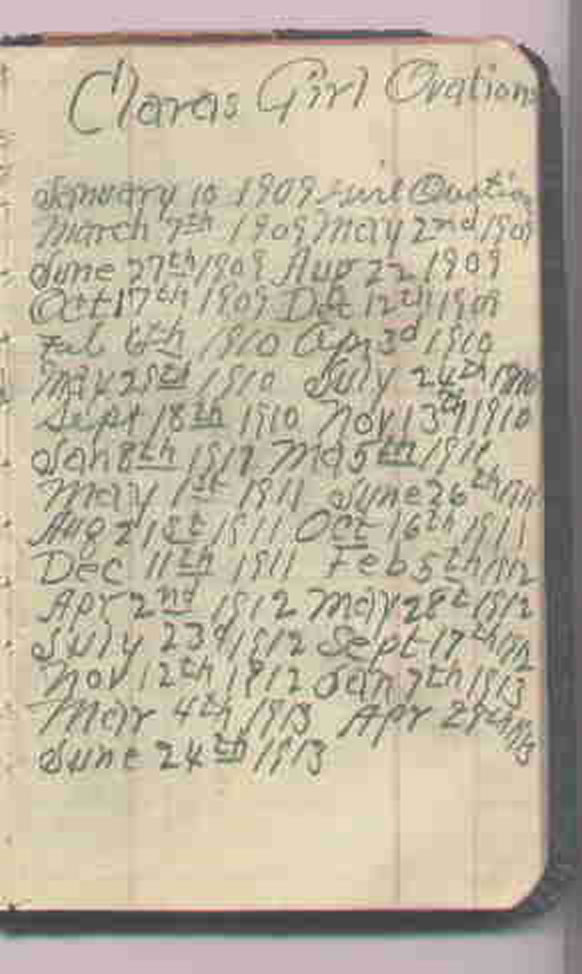 Claras Girl Ovations
January 10 1909 Girl Ovation
March 7th 1909 May 2nd 1909
June 27th 1909 Aug 22 1909
Oct 17th 1909 Dec 12th 1909
Feb 6th 1910 Apr 3d 1910
May 29th 1910 July 24th 1910
Sept 18th 1910 Nov 13th 1910
Jan 8th 1911 Ma 5th 1911
May 1st 1911 June 26th 1911
Aug 21st 1911 Oct 16th 1911
Dec 11th 1911 Feb 5th 1912
Apr 2nd 1912 May 28t 1912
July 23d 1912 Sept 17th 1912
Nov 12th 1912 Jan 7th 1913
Mar 4th 1913 Apr 29th 1913
June 24th 1913